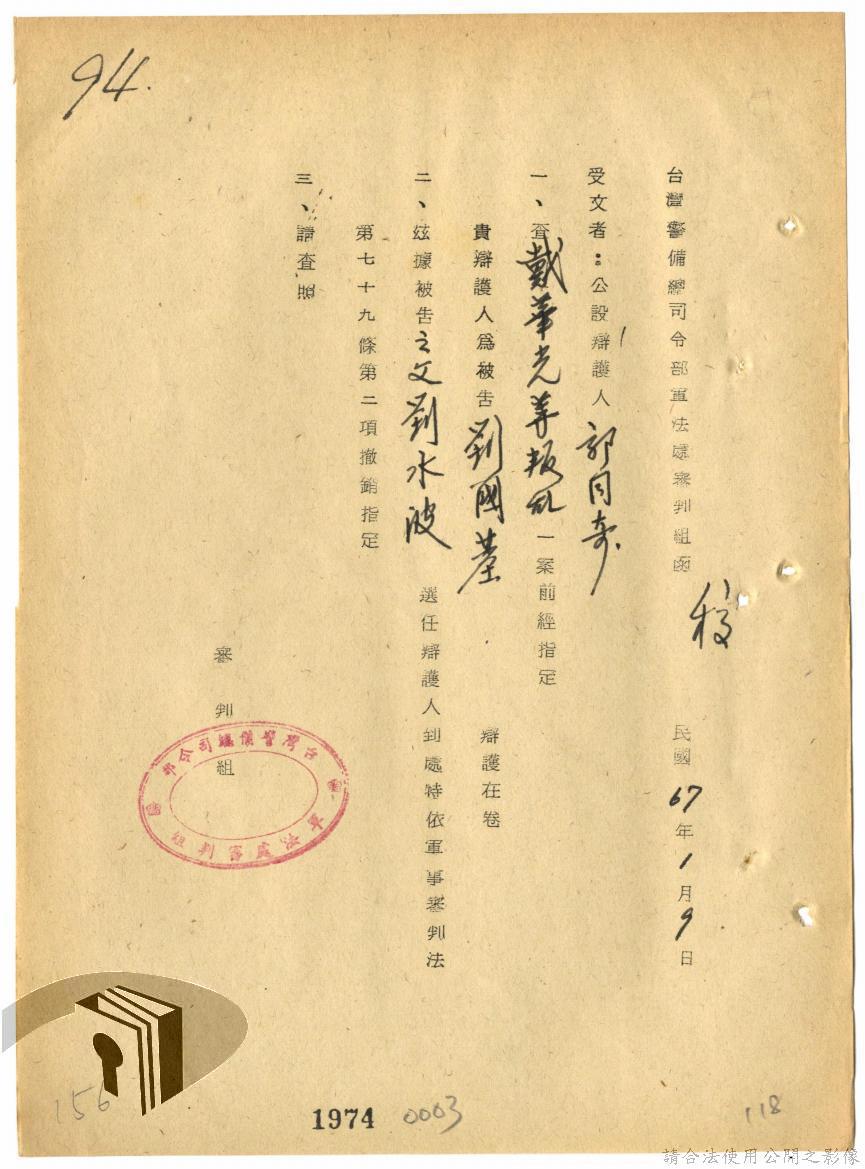 94.
台灣警備總司令部軍法處審判組函
稿
民國67年1月9日
受文者：公設辯護人郭同奇
一、查戴華光等叛亂一案前經指定
貴辯護人為被告劉國基辯護在卷
二、茲據被告之父劉水波選任辯護人到處特依軍事審判法
第七十九條第二項撤銷指定
三、請查照
審判組
台灣警備總司令部
軍法處審判組
156
1974
0003
118
請合法使用公開之影像